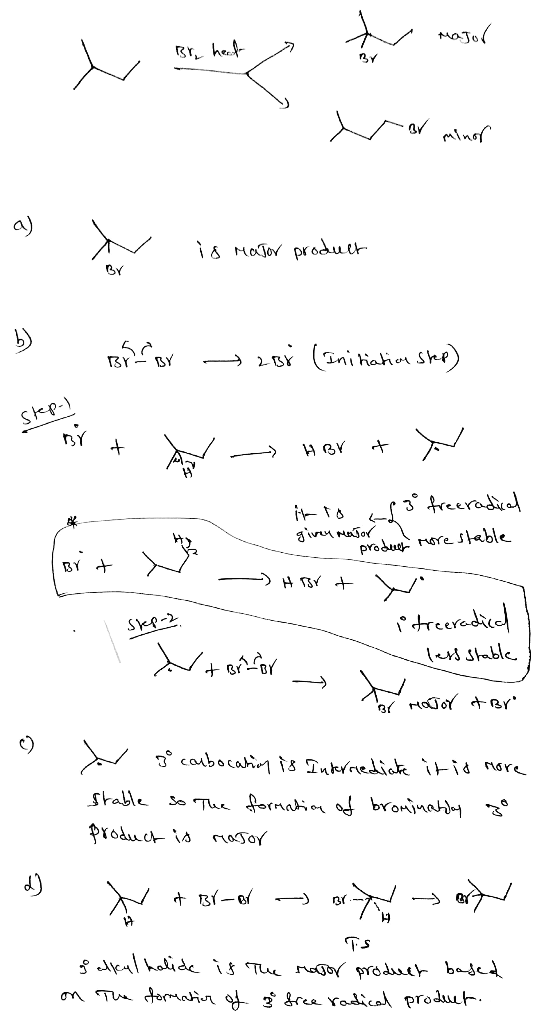 Br2 heat
Major
Br
Br minor
a)
is Major product
Br
b)
Br–Br → 2Br• (Initiation step)
Step-1
Br• + H → HBr +
it is giving major product
3° freeradical
more stable
*
Br• + H → HBr +
1° freeradical
less stable
Step-2
+ Br–Br → Br Major + Br•
c)
3° carbocation is Intermediate it is more
stable so The formation of 3°
product is major
d)
H + Br–Br → Br H → Br
T.S
3° alkyl halide is The major product based
on The formation of 3° free radical product.